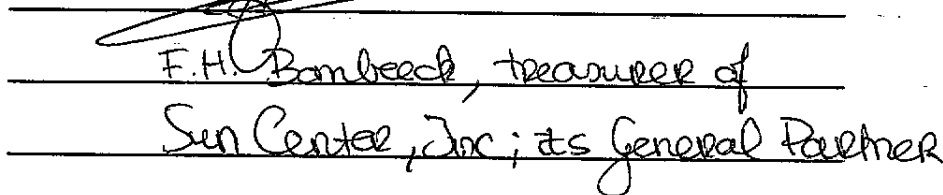 F.H. Bambeeck, treasurer of
Sun Center, Inc; its General Partner